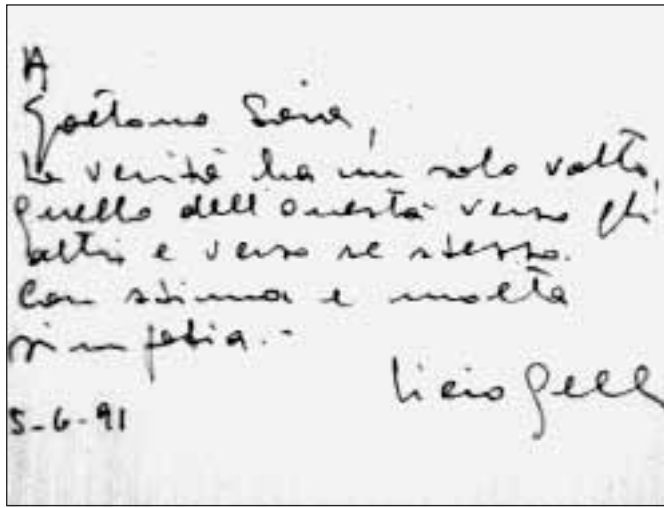 A
Gaetano Sana,
La verità ha un solo volto,
quello dell'onestà verso gli
altri e verso se stesso.
Con stima e molta
simpatia.-
Licio Gelli
5-6-91